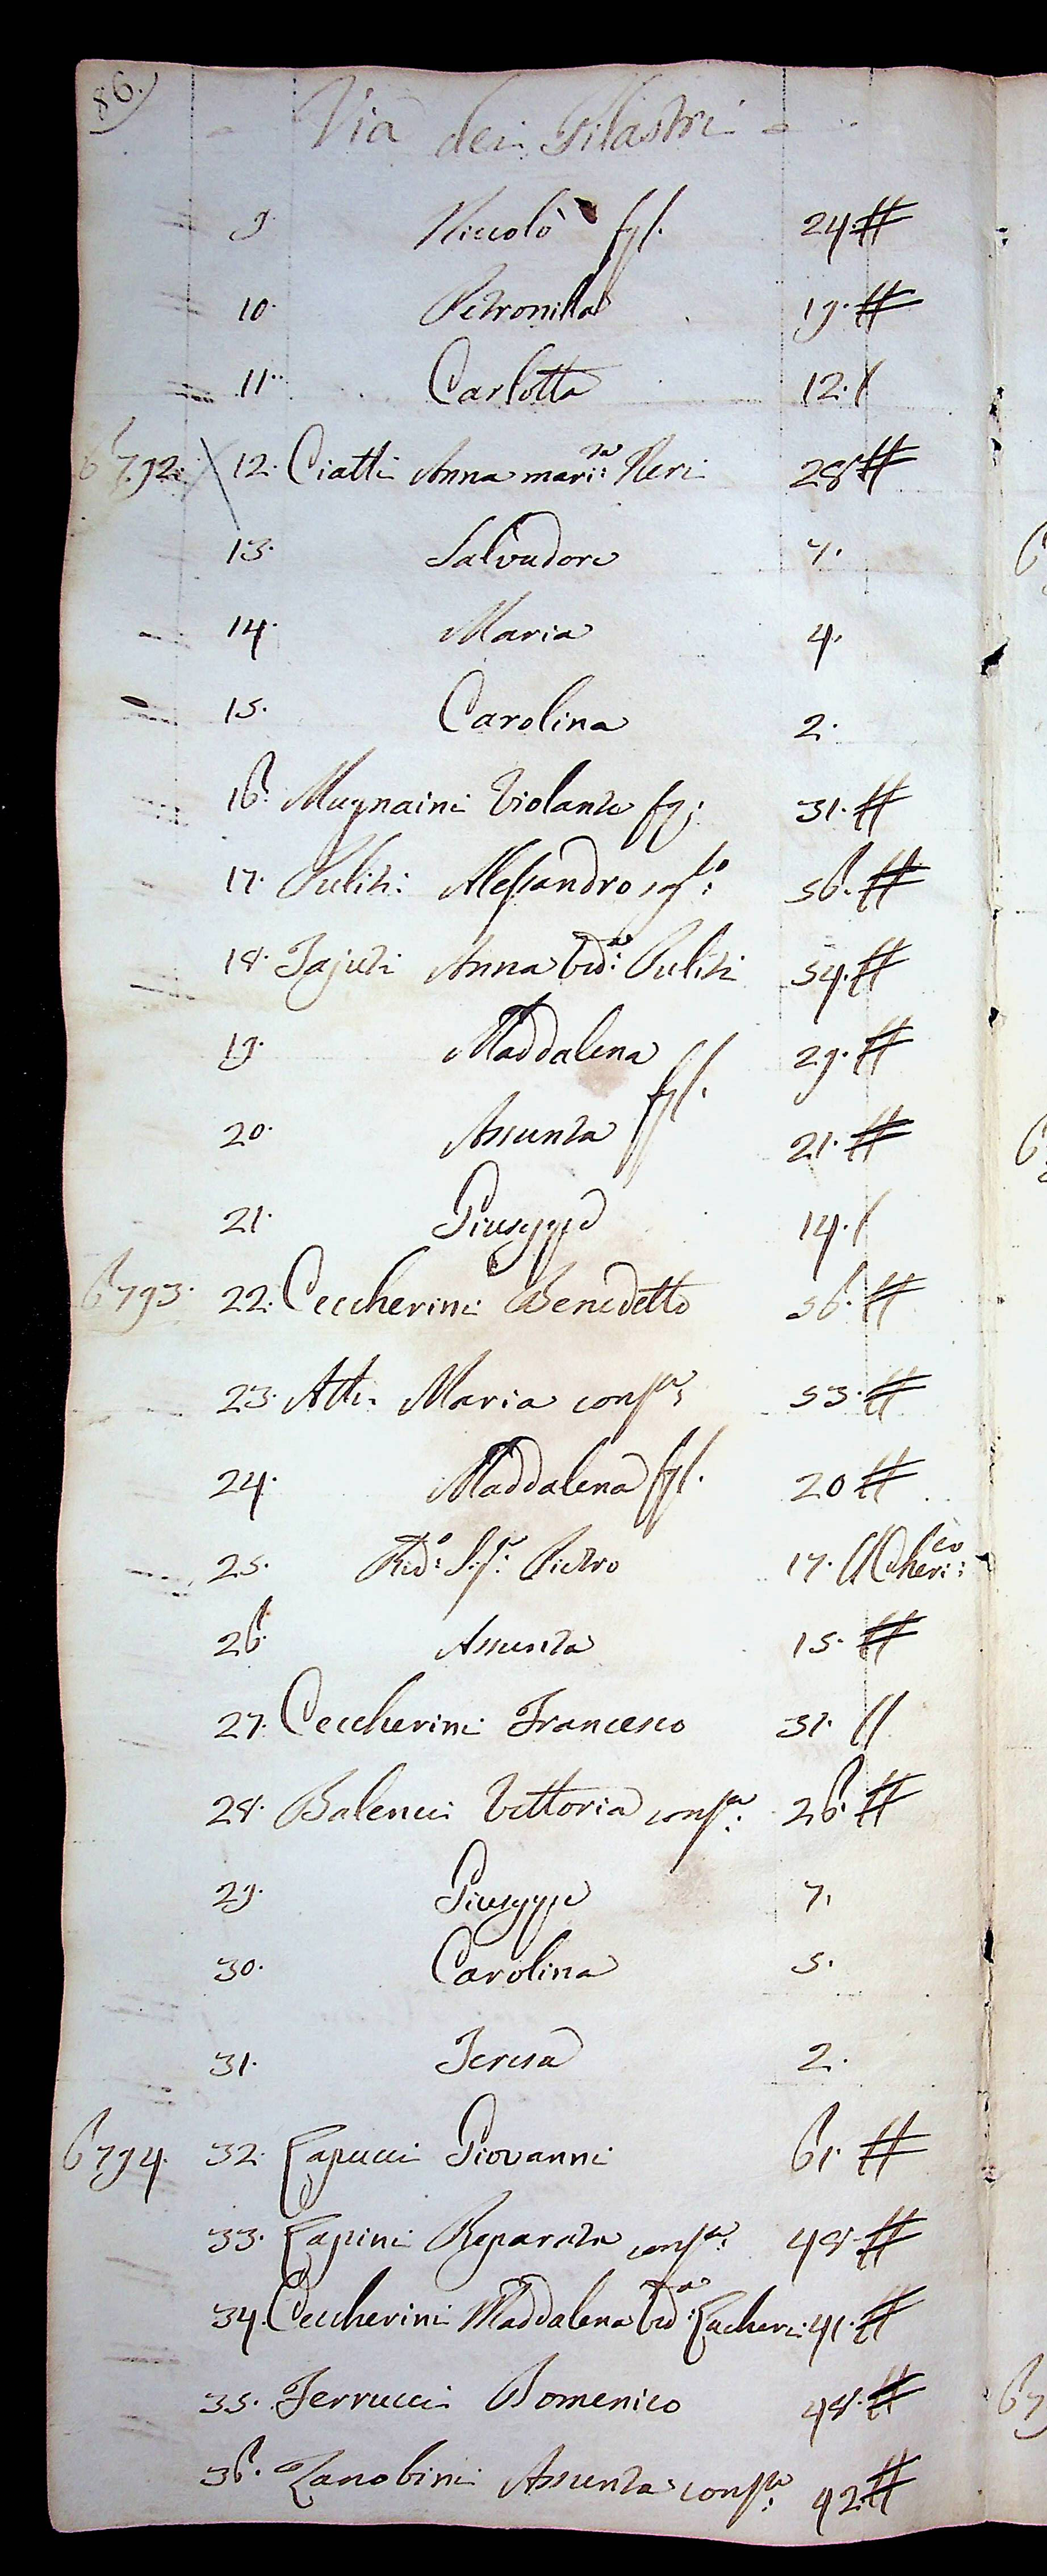 86.)
Via dei Pilastri
9. Niccolò fgl. 24. #
10. Petronilla 19. #
11. Carlotta 12. /
6792. X 12. Ciatti Anna mari:ta Neri 28 #
13. Salvadore 7.
14. Maria 4.
15. Carolina 2.
16. Mugnaini Violante fg: 31. #
17. Puliti: Alessandro 56. #
18. Anna Ved:a Puliti 54. #
19. Maddalena 29. #
fgl.
20. Assunta 21. #
21. Giuseppe 14. /
6793. 22. Ceccherini Benedetto 56. #
23. Atti Maria cons:a 53. #
24. Maddalena fgl. 20 #
25. Rev:do Pietro 17. // Cheri:co
26. Assunta 15. #
27. Ceccherini Francesco 31. //
28. Balenci Vittoria cons:a 26. #
29. Giuseppe 7.
30. Carolina 5.
31. Teresa 2.
6794. 32. Capucci Giovanni 61. #
33. Reparata cons:a 48. #
34. Ceccherini Maddalena Ved:a 41. #
35. Ferrucci Domenico 48. #
36. Zanobini Assunta cons:a 42. #